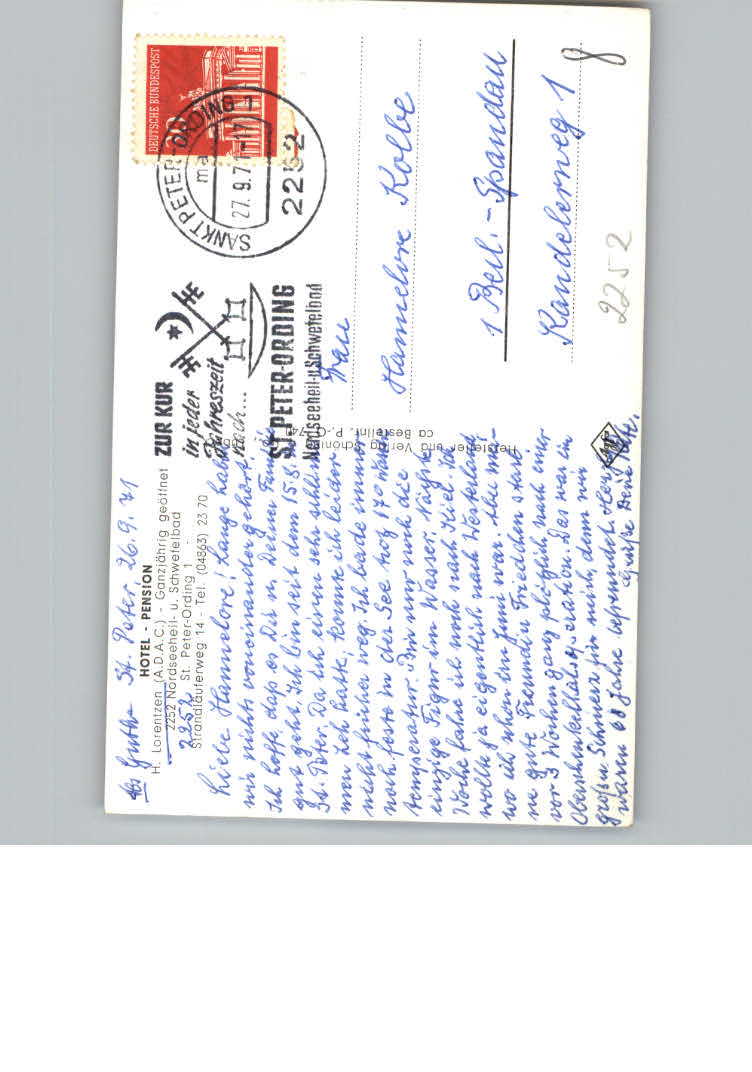 Abs. Gruthe St. Peter, 26.9.71
HOTEL - PENSION
H. Lorentzen (A.D.A.C.) - Ganzjährig geöffnet
2252 Nordseeheil- u. Schwefelbad
2252 St. Peter-Ording 1
Strandläuferweg 14 - Tel. (04863) 23 70
Liebe Hannelore! Lange haben
wir nichts voneinander gehört.
Ich hoffe daß es Dir u. Deiner Familie
gut geht. Ich bin seit dem 15.8. in
St. Peter. Da ich einen sehr schlim-
men hatte, konnte ich leider
nicht früher weg. Ich bade immer
noch feste in der See trotz 17° Wasser
temperatur. Bin nur noch die
einzige Figur im Wasser. Nächste
Woche fahre ich noch nach Kiel. Ich
wollte ja eigentlich nach Westerland
wo ich schon im Juni war. Aber mei-
ne gute Freundin Friedchen starb
vor 3 Wochen ganz plötzlich nach einer
Oberschenkelhalsoperation. Das war ein
großer Schmerz für mich, denn wir
waren 68 Jahre befreundet. Herzl.
Grüße Deine
Hersteller und Verlag Schöning
ca Bestellnr. P.
DEUTSCHE BUNDESPOST
30
SANKT PETER-ORDING 1
27.9.71-17
2252
ZUR KUR
in jeder
Jahreszeit
nach...
ST. PETER-ORDING
Nordseeheil-u.Schwefelbad
Frau
Hannelore Kolbe
1 Berl.-Spandau
Kandelerweg 1
8
2252